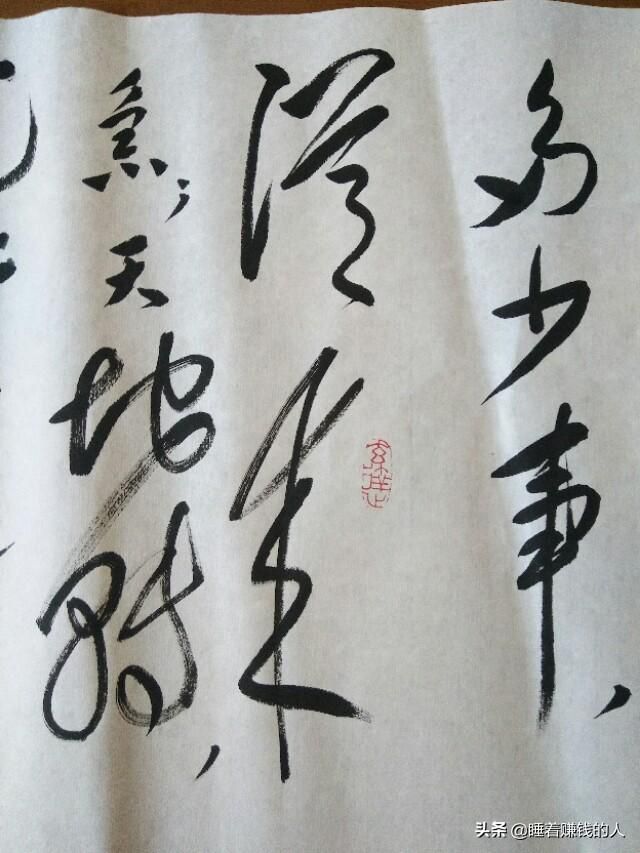 多少事,
從来
急;天地轉,
头条 @睡着赚钱的人